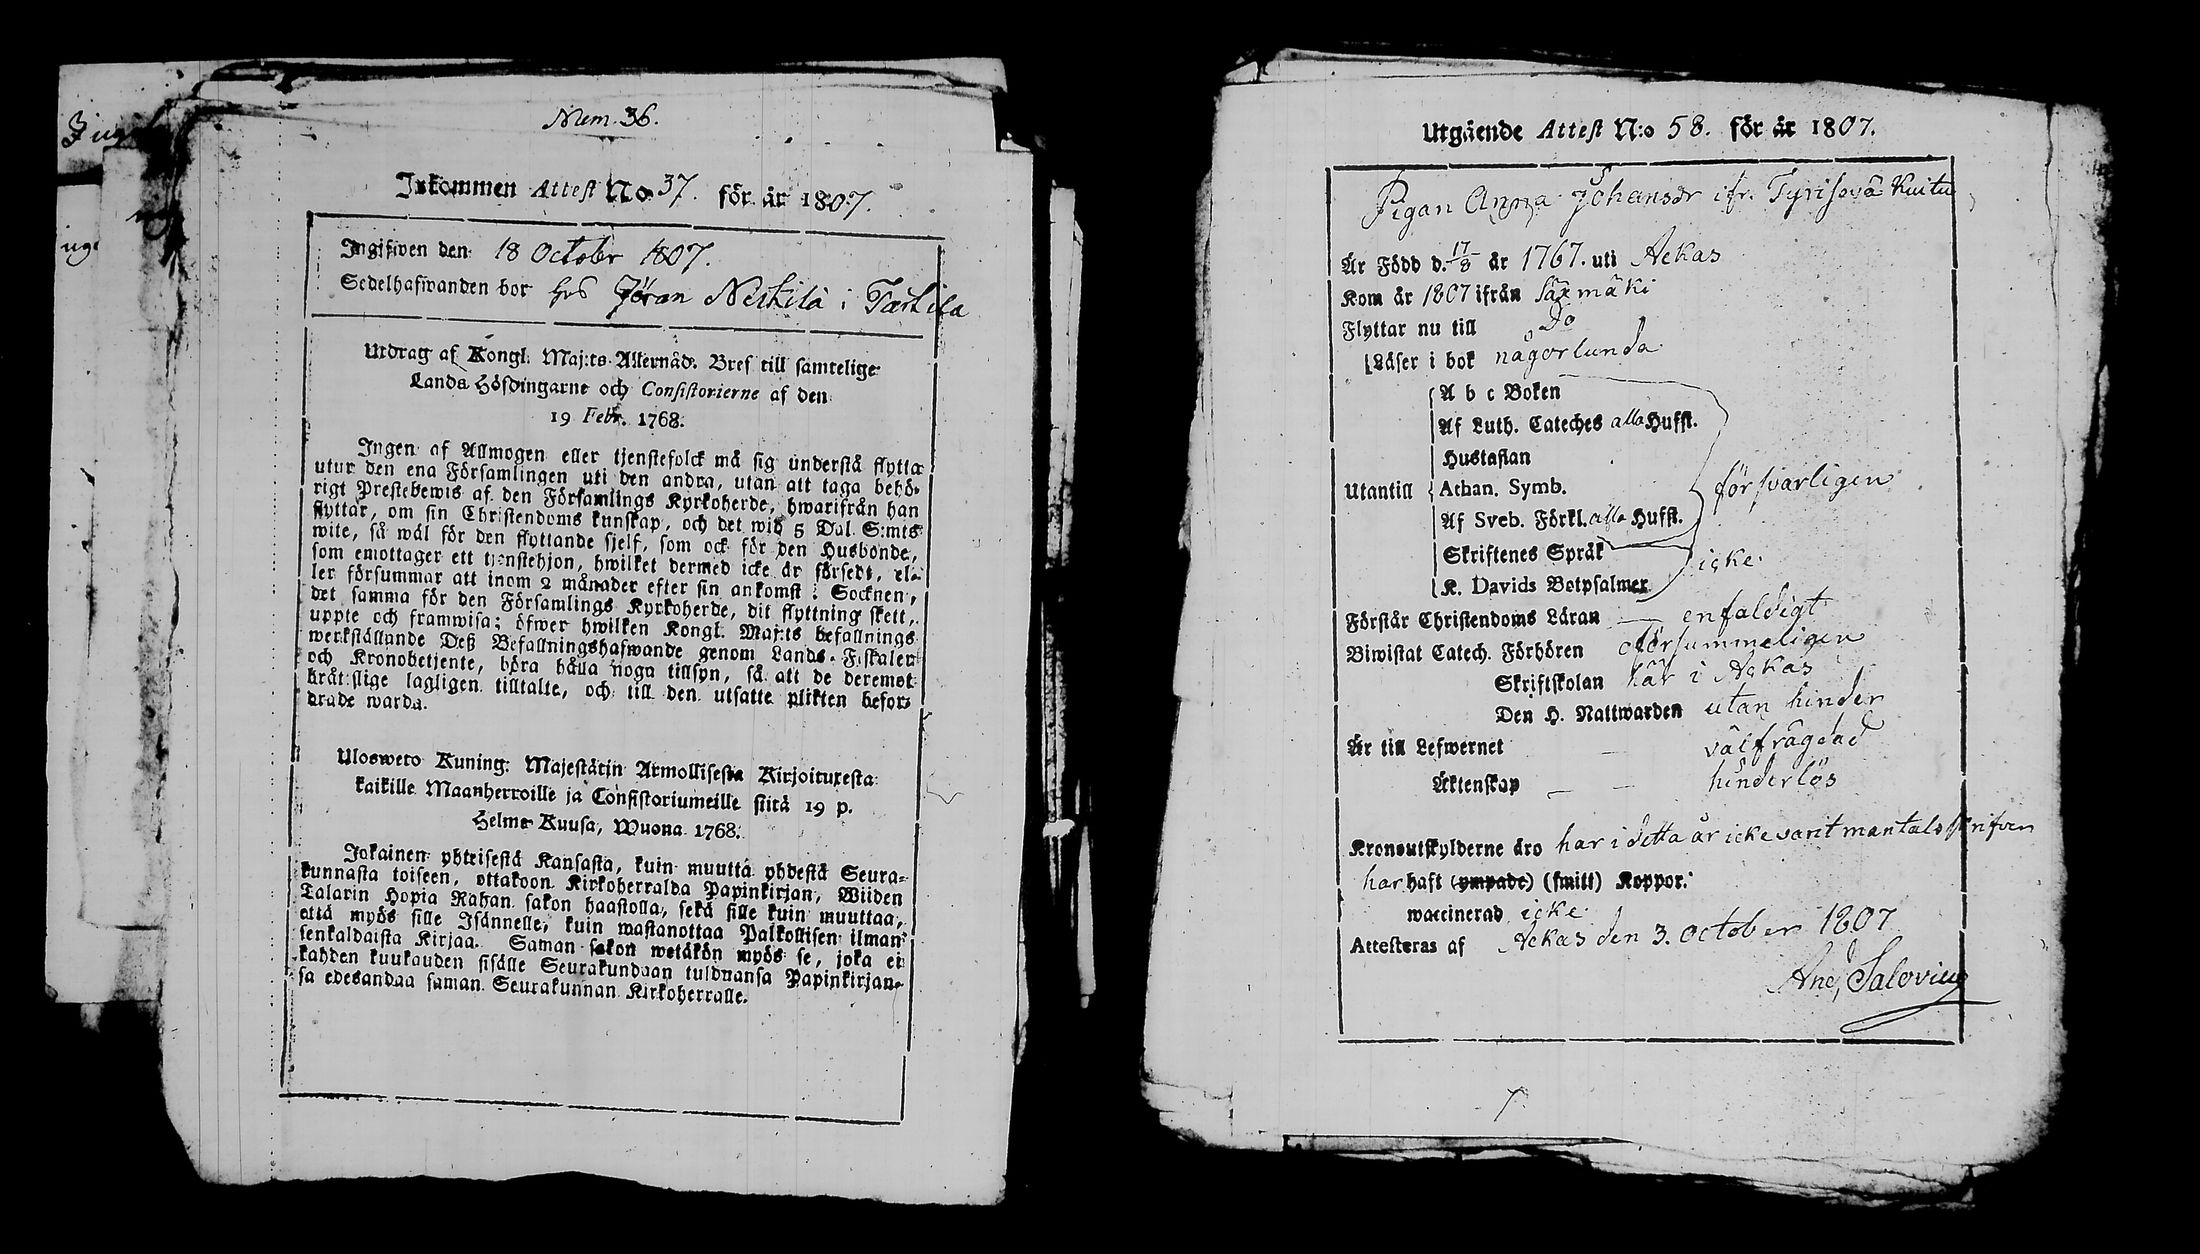 Num. 36.
Inkommen Attest No 37. för år 1807.
Ingifwen den 18 October 1807.
Sedelhafwanden bor hos Jöran Neikilä i Tarkila
Utdrag af Kongl. Maj:ts Allernåd. Bref till samtelige
Lands Höfdingarne och Consistorierne af den
19 Febr. 1768.
Ingen af Allmogen eller tjenstefolck må sig understå flytta
utur den ena Församlingen uti den andra, utan att taga behö-
rigt Prestebewis af den Församlings Kyrkoherde, hwarifrån han
flyttar, om sin Christendoms kunskap, och det wid 5 Dal. S:mts
wite, så wäl för den flyttande sjelf, som ock för den Husbonde,
som emottager ett tjenstehjon, hwilket dermed icke är försedt, el-
ler försummar att inom 2 månader efter sin ankomst i Socknen,
det samma för den Församlings Kyrkoherde, dit flyttning skett,
uppte och framwisa; öfwer hwilken Kongl. Maj:ts befallnings
werkställande Deß Befallningshafwande genom Lands-Fiskaler
och Kronobetjente, böra hålla noga tillsyn, så att de deremot
bråtslige lagligen tilltalte, och till den utsatte plikten befor-
drade warda.
Ulosweto Kuning. Majestätin Armollisesta Kirjoituxesta
kaikille Maanherroille ja Consistoriumeille siitä 19 p.
Helme Kuusa, Wuona 1768.
Jokainen yhteisestä Kansasta, kuin muutta yhdestä Seura-
kunnasta toiseen, ottakoon Kirkoherralda Papinkirjan, Wiiden
Talarin Hopia Rahan sakon haastolla, sekä sille kuin muuttaa,
että myös sille Isännelle, kuin wastanottaa Palkollisen ilman
senkaldaista Kirjaa. Saman sakon wetäkön myös se, joka ei
kahden kuukauden sisälle Seurakundaan tulduansa Papinkirjan-
sa edesandaa saman Seurakunnan Kirkoherralle.
Utgående Attest N:o 58. för år 1807.
Pigan Anna Johansdr ifr. Tyrisevä Kuitu
Är Född d. 17/8 år 1767. uti Ackas
Kom år 1807 ifrån Säxmäki
Flyttar nu till Do
Läser i bok någorlunda
A b c Boken
Af Luth. Cateches alla Hufst.
Hustaflan
Utantill Athan. Symb. försvarligen
Af Sveb. Förkl. alla Hufst.
Skriftenes Språk icke
K. Davids Botpsalmer
Förstår Christendoms Läran enfaldigt
Biwistat Catech. Förhören oförsummeligen
Skriftskolan här i Ackas
Den H. Nattwarden utan hinder
Är till Lefwernet välfrägdad
Äktenskap hinderlös
Kronoutskylderne äro har i detta år icke varit mantalsskrifven
har haft (ympade) (smitt) Koppor.
waccinerad icke
Attesteras af Ackas den 3. October 1807
And. Salovius